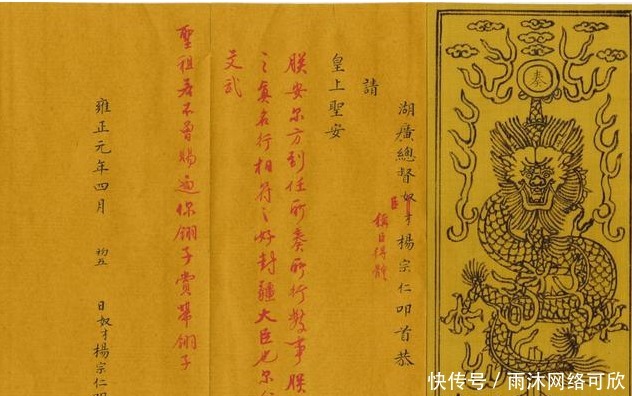 奏
湖廣總督奴才楊宗仁叩首恭
臣
稱臣得體
請
皇上聖安
朕安尔方到任所奏所行數事朕
之真名行相符之好封疆大臣也尔
文武
聖祖若不曾賜過你翎子賞帶翎子
雍正元年四月 初五 日奴才楊宗仁叩
快传号 / 雨沐网络可欣